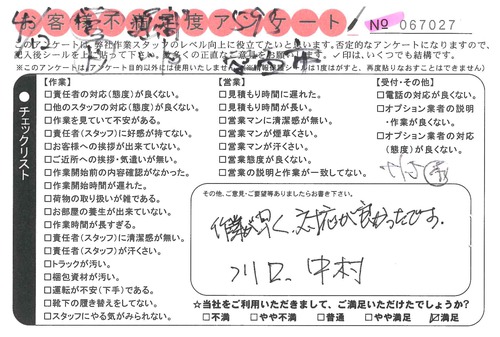 お客様不満度アンケート
No 067027
このアンケートは、弊社作業スタッフのレベル向上に役立てたいと思います。否定的なアンケートになりますので、
※このアンケートは、アンケート目的以外には使用いたしません
チェックリスト
【作業】
□責任者の対応(態度)が良くない。
□他のスタッフの対応(態度)が良くない。
□作業を見ていて不安がある。
□責任者(スタッフ)に好感が持てない。
□お客様への挨拶が出来ていない。
□ご近所への挨拶・気遣いが無い。
□作業開始前の内容確認がなかった。
□作業開始時間が遅れた。
□荷物の取り扱いが雑である。
□お部屋の養生が出来ていない。
□作業時間が長すぎる。
□責任者(スタッフ)に清潔感が無い。
□責任者(スタッフ)が汗くさい。
□トラックが汚い。
□梱包資材が汚い。
□運転が不安(下手)である。
□靴下の履き替えをしてない。
□スタッフにやる気がみられない。
【営業】
□見積もり時間に遅れた。
□見積もり時間が長い。
□営業マンに清潔感が無い。
□営業マンが煙草くさい。
□営業マンが汗くさい。
□営業態度が良くない。
□営業の説明と作業が一致してない。
【受付・その他】
□電話の対応が良くない。
□オプション業者の説明
・作業が良くない。
□オプション業者の対応
(態度)が良くない。
その他、ご意見・ご要望等ありましたらお書き下さい。
作業が早く、対応が良かったです。
川口、中村
☆当社をご利用いただきまして、ご満足いただけたでしょうか?
□不満 □やや不満 □普通 □やや満足 ☑満足